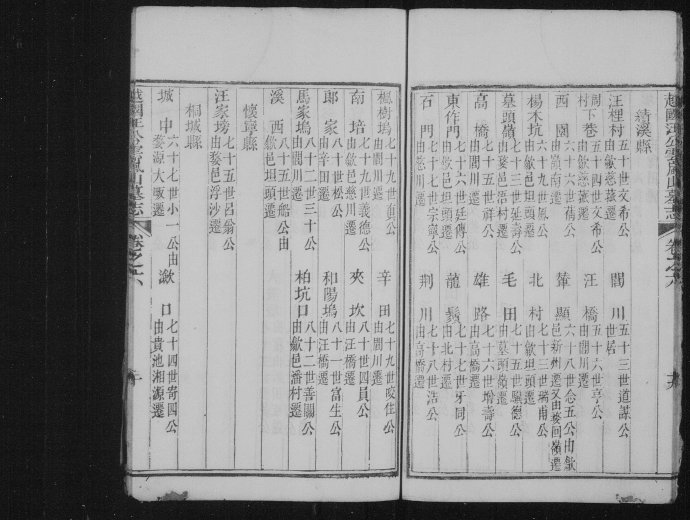 越國汪公雲嵐山墓志 卷之六
績溪縣
汪裡村 五十世文希公由歙慈菰遷 閣川 五十三世道謀公世居
周下巷村 五十四世文布公由歙慈菰遷 汪橋 五十六世亨公由閣川遷
西園 六十六世 公由嶺南遷 輋顯 六十八世念五公由歙邑新州遷又由 回嶺遷
楊木坑 六十九世 公由歙坦頭遷 北村 七十三世 公由歙坦頭遷
墓頭嶺 七十三世延壽公由歙邑坦頭遷 毛田 七十五世 德公由墓頭嶺遷
高橋 七十五世 公由閣川遷 雄路 七十六世增壽公由高橋遷
東作門 七十六世廷傳公由閣川遷 龍鬚 七十七世牙同公由北村遷
石門 七十七世宗寧公由慈川遷 荆川 七十八世浩公由高橋遷
楓樹塢 七十九世 公由閣川遷 辛田 七十九世 住公由閣川遷
南培 七十九世義德公由歙邑慈川遷 夾坎 八十世四員公由汪橋遷
郎家 八十世松公由辛田遷 和陽塢 八十二世富生公由汪橋遷
馬家塢 八十二世三十公由閣川遷 柏坑口 八十二世善關公由歙邑潘村遷
溪西 八十五世船公由歙邑坦頭遷
懷寧縣
汪家塝 七十五世呂翁公由婺邑浮沙遷
桐城縣
城中 六十七世小一公由婺源大畈遷 漵口 七十四世寄四公由貴池湘源遷
越國汪公雲嵐山墓志 卷之六